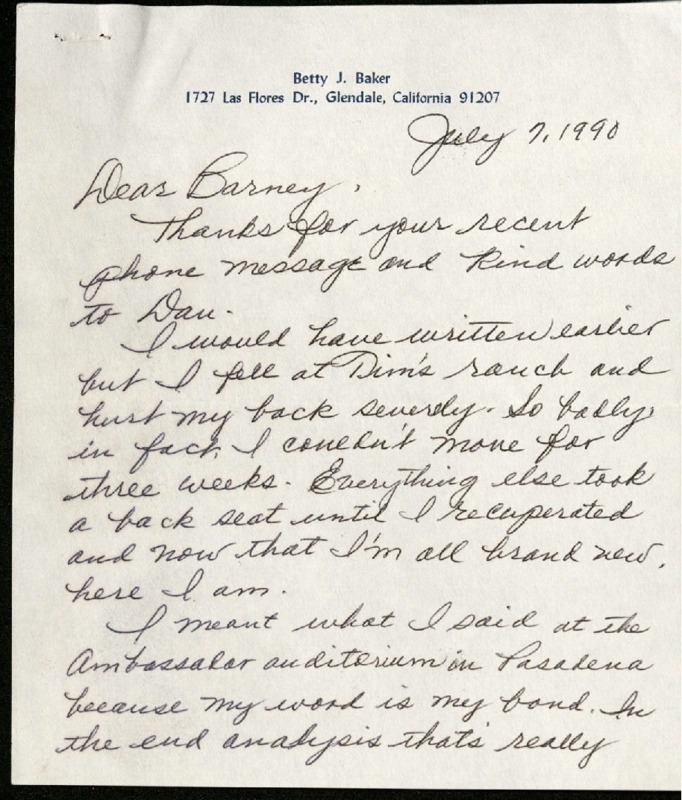 Betty J. Baker
1727 Las Flores Dr., Glendale, California 91207
July 7, 1990
Dear Barney,
Thanks for your recent
phone message and kind words
to Dan.
I would have written earlier
but I fell at Tim's ranch and
hurt my back severely. So badly
in fact, I couldn't move for
three weeks. Everything else took
a back seat until I recuperated
and now that I'm all brand new,
here I am.
I meant what I said at the
Ambassador auditorium in Pasadena
because my word is my bond. In
the end analysis that's really